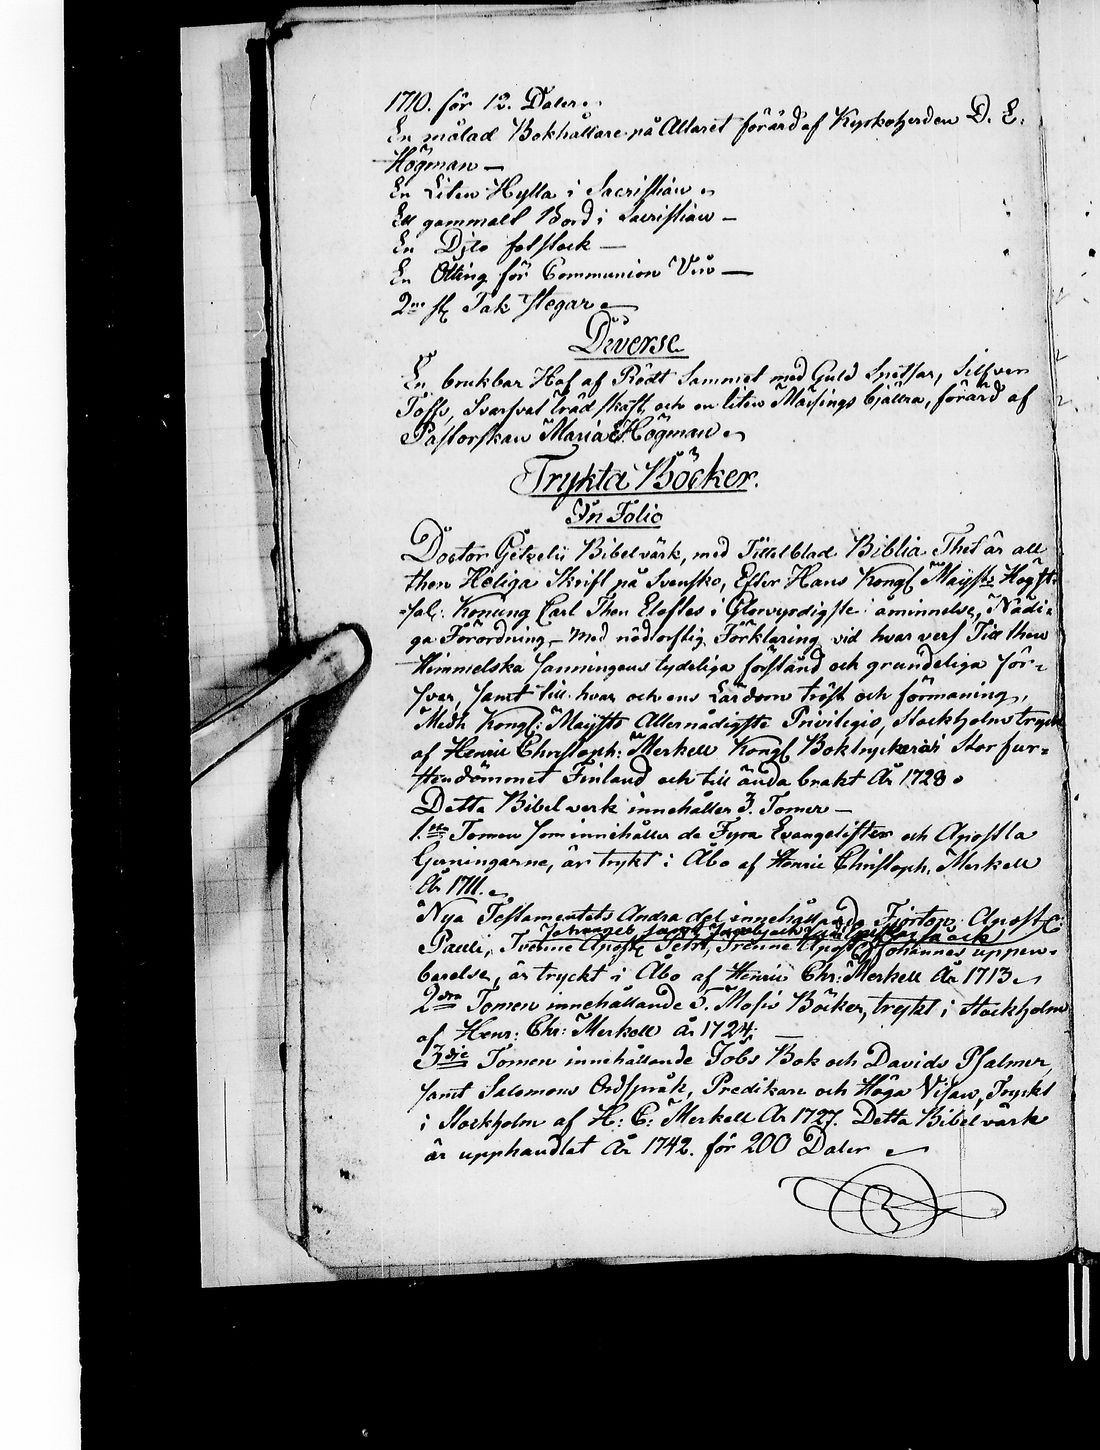 1710. för 12. Daler
En målad Bokhållare på Altaret förärd af Kyrkoherden D. E.
Högman —
En Liten Hylla i Sacristian
Ett gammalt Bord i Sacristian —
En Dito folstock —
En Otting för Communion Vin —
2ne st Tak stegar
Diverse
En brukbar Haf af Rödt Sammet med Guld Spetsar, Silfver
Toffs, Svarfvat träd skaft, och en liten Mässings bjällra, förärd af
Pastorskan Maria Högman
Trykta Böcker.
In Folio
Doctor Gezelii Bibelvärk, med Tittelblad Biblia Thet är all
then Heliga Skrift på Svensko, Efter Hans Kongl Mayst:s Högst-
sal: Konung Carl Then Eloftes i Glorvyrdigste i åminnelse, Nådi-
ga Förordning — Med nödtorftig Förklaring vid hvar vers Till then
Himmelska sanningens tydeliga förstånd och grundeliga för-
svar, samt till hvar och ens Lärdom tröst och förmaning,
Medh Kongl: Mayst:s Allernådigste Privilegio, Stockholm tryckt
af Henric Christoph: Merkell Kongl Boktryckeriet i Storfur-
stendömmet Finland och till ända brakt År 1728
Detta Bibel verk innehåller 3. Tomer —
1:sta Tomen som innehåller de Fyra Evangelister och Apostla
Gerningarne, är trykt i Åbo af Henric Christoph: Merkell
År 1711.
Nya Testamentets Andra del innehållande Fjorton Apost:
Pauli, Tvänne Apost Petri, Trenne Apost Johannes uppen-
barelse, är tryckt i Åbo af Henric Chr: Merkell År 1713
2dra Tomen innehållande 5. Mosis Böcker, trykt i Stockholm
af Henr: Chr: Merkell År 1724. —
3die Tomen innehållande Jobs Bok och Davids Psalmer,
samt Salomons Ordspråk, Predikare och Höga Visan, Tryckt
i Stockholm af H: C: Merkell År 1727. Detta Bibelvärk
är upphandlat År 1742. för 200 Daler